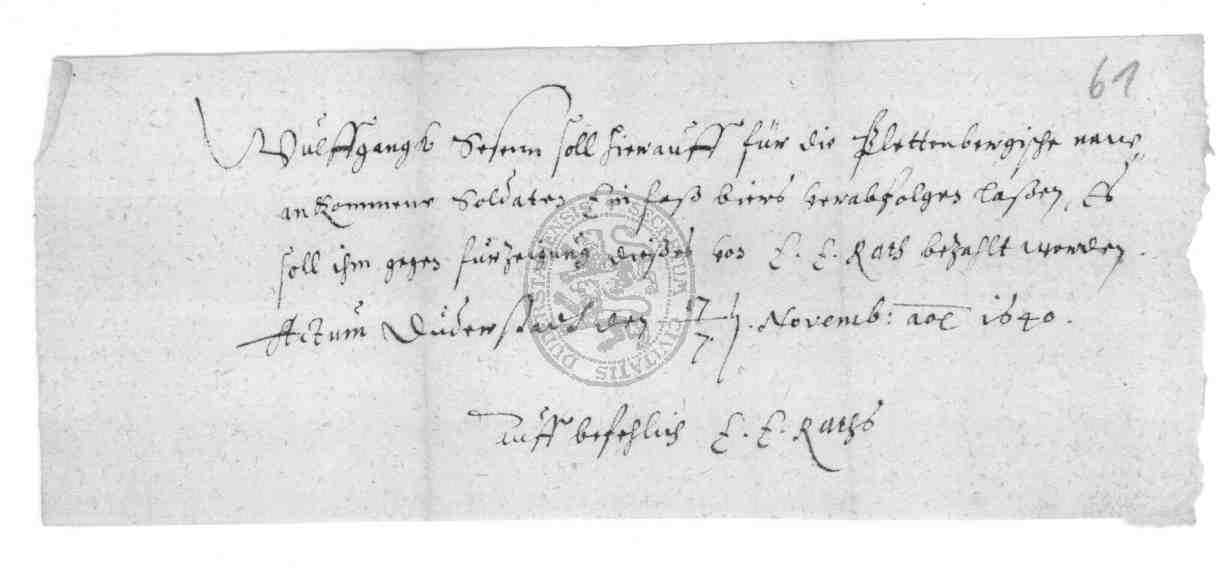 61
Wulffgangk Sesenn soll hierauff für die Plettenbergische neuw
ankommene Soldaten Ein faß biers verabfolgen laßen, Es
soll ihm gegen fürzeigung dießes von E. E. Rath bezahlt werden.
Actum Duderstadt den 7/17. Novemb: ao 1640.
auff befehlich E. E. Raths
SECRETUM CIVITATIS DUDERSTADENSIS